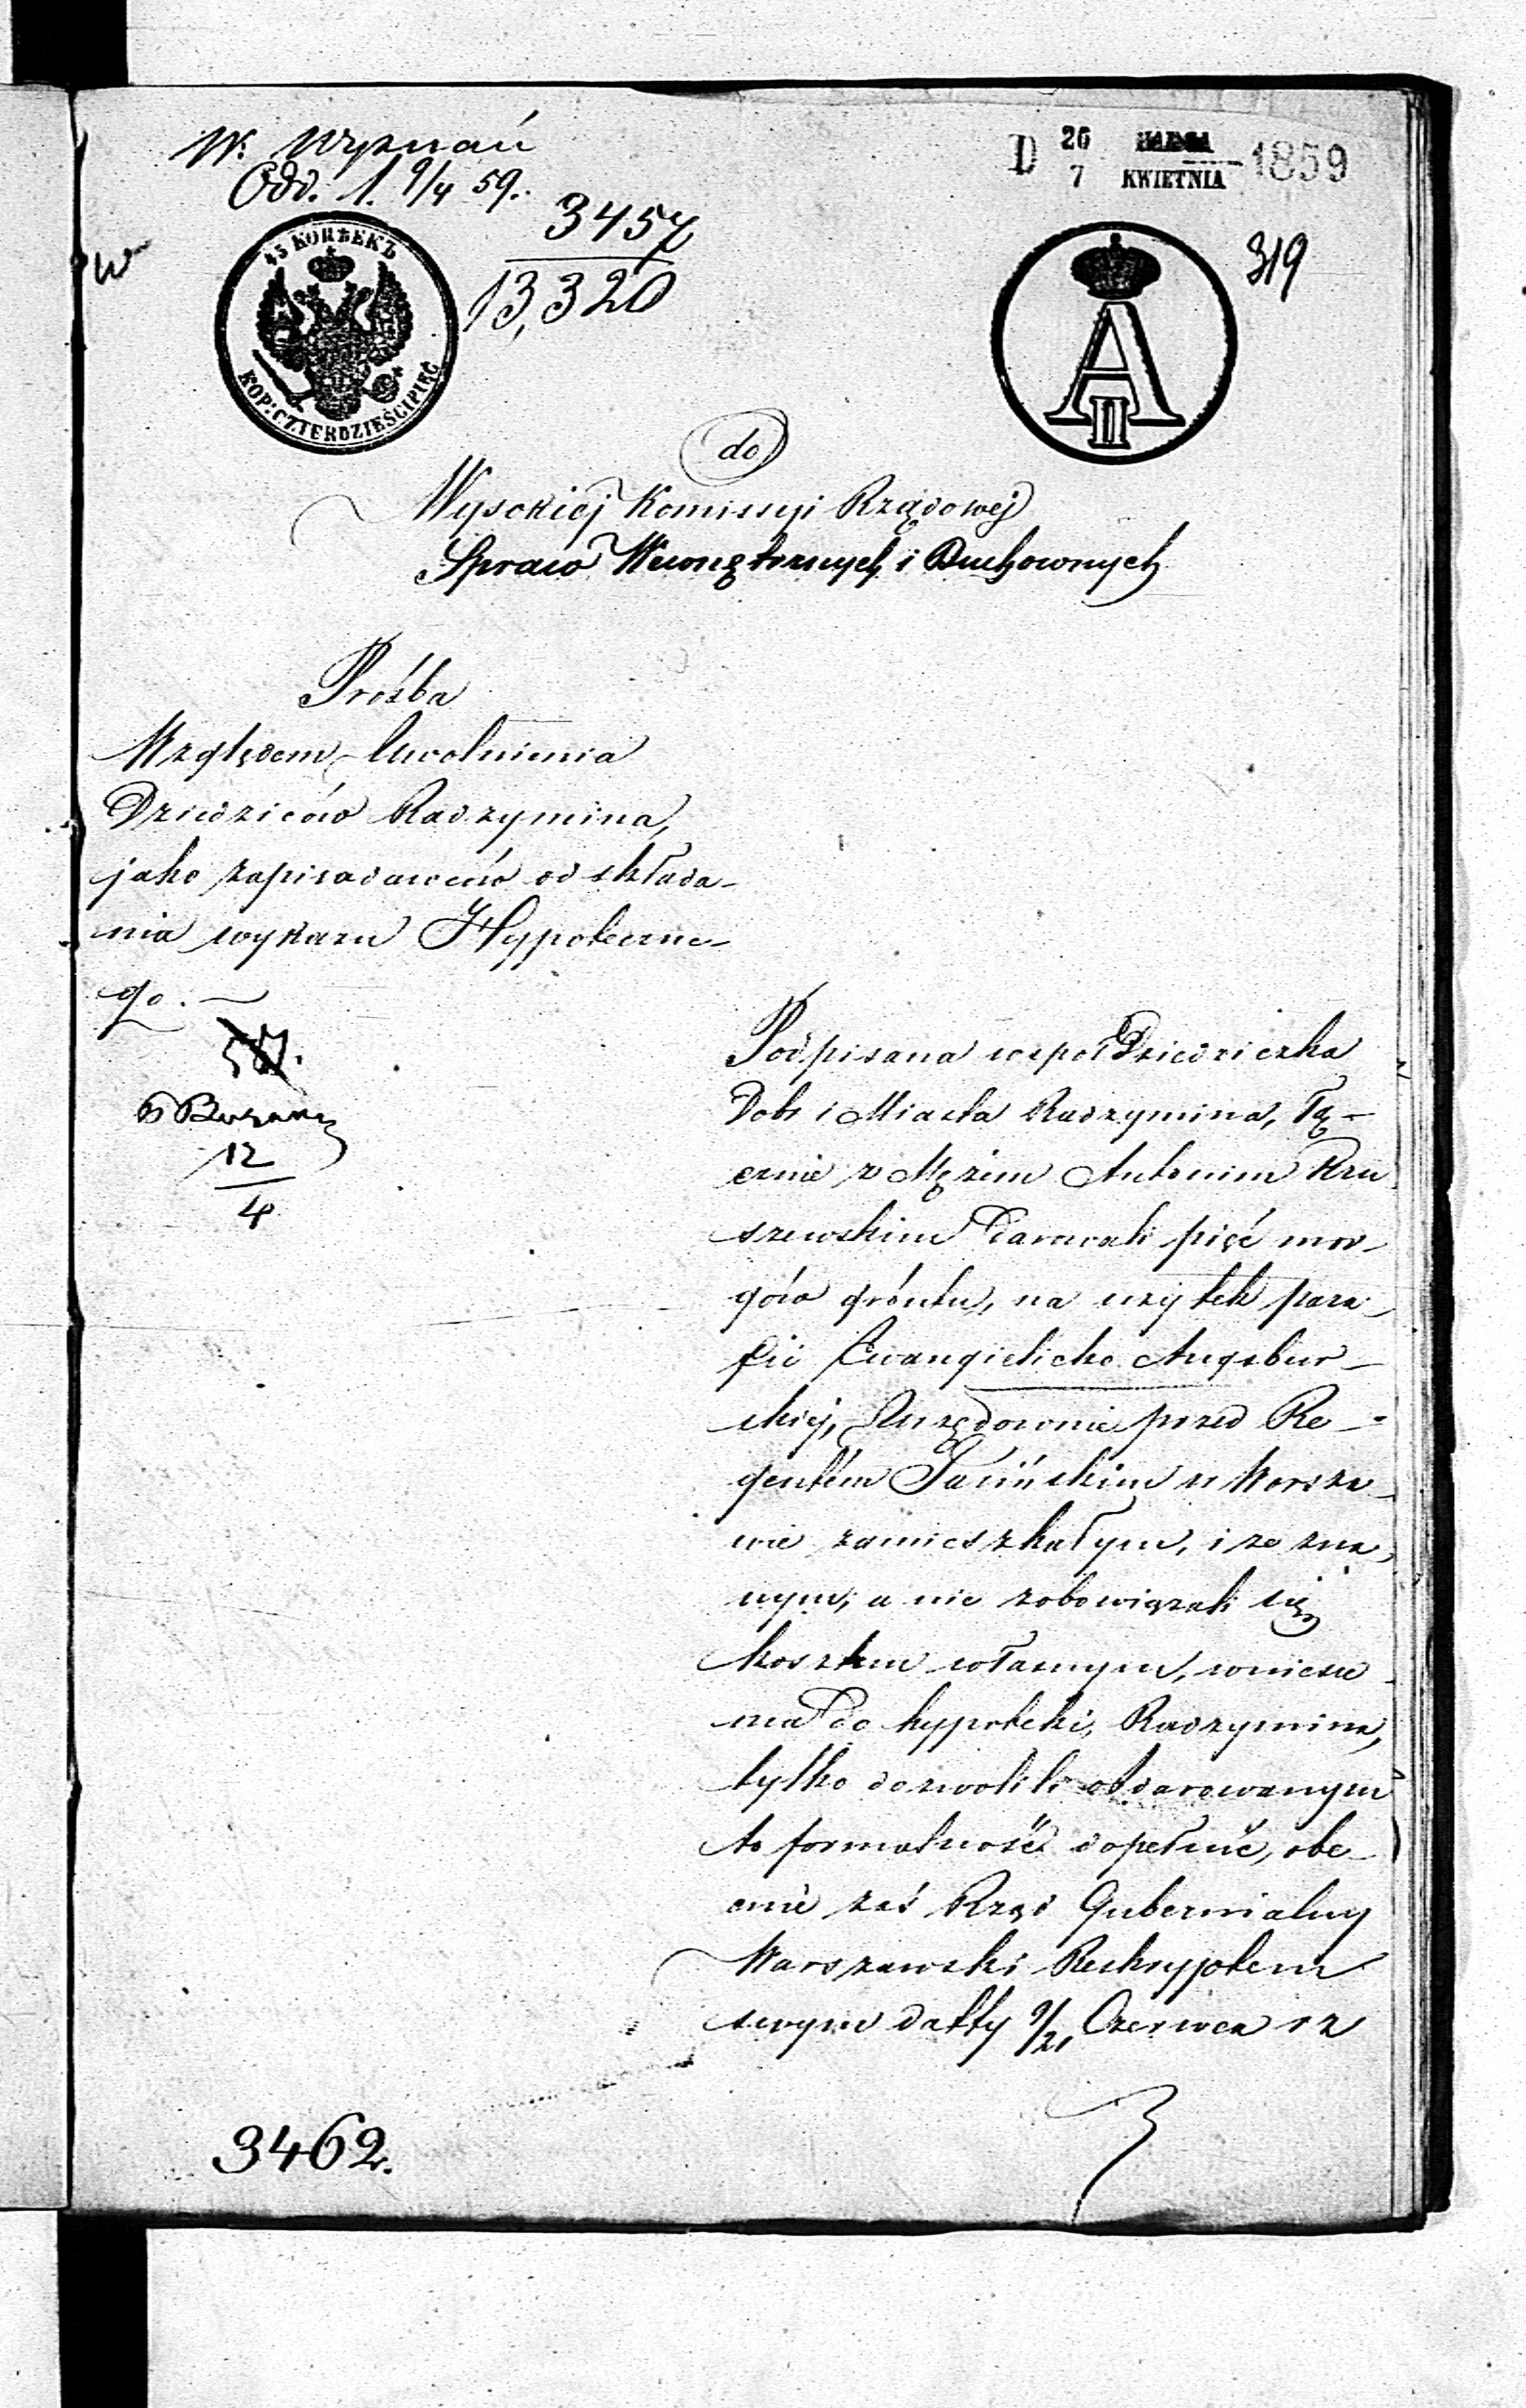 W. Wyznań
Odd. 1. 9/4 59.
3457
13,320
D 26 MARCA 1859
7 KWIETNIA
319
45 КОПѢЕКЪ
KOP: CZTERDZIEŚCI PIĘĆ
A II
do
Wysokiej Komissyi Rządowej
Spraw Wewnętrznych i Duchownych
Prośba
Względem Uwolnienia
Dziedziców Radzymina,
jako zapisodawców od składa-
nia wykazu Hypoteczne-
go. —
12
4
Podpisana współDziedziczka
Dobr i Miasta Radzymina, łą-
cznie z Mężem Antonim Kru
szewskim darowali pięć mor-
gów gróntu, na użytek para-
fii Ewangielicko Augsbur-
skiej, Urzędownie przed Re-
gentém Jasińskim w Warsza-
wie zamieszkałym, i ze zna-
nym, a nie zobowiązali się
kosztem własnym, wniesie-
nia do hypoteki, Radzymina,
tylko dozwolili obdarowanym
to formalność dopełnić, obe-
cnie zaś Rząd Gubernialny
Warszawski Reskryptem
swym datty 9/21 Czerwca rz
3462.